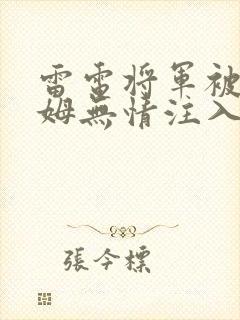 雷電將軍被
姆無情注入
張今標